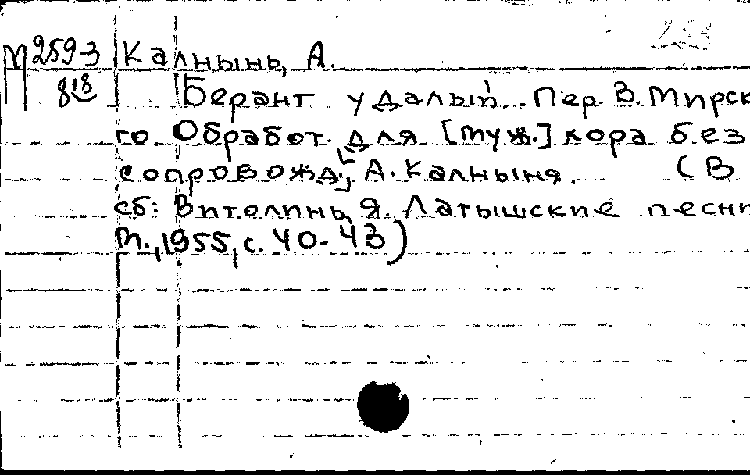 М 2593 Калнынь, А.
818 Берант удалый. Пер. В. Мирск
го Обработ. для [муж.] хора без
сопровожд. А. Калныня. (В
сб: Витолинь, Я. Латышские песни
М., 1955, с. 40-43)